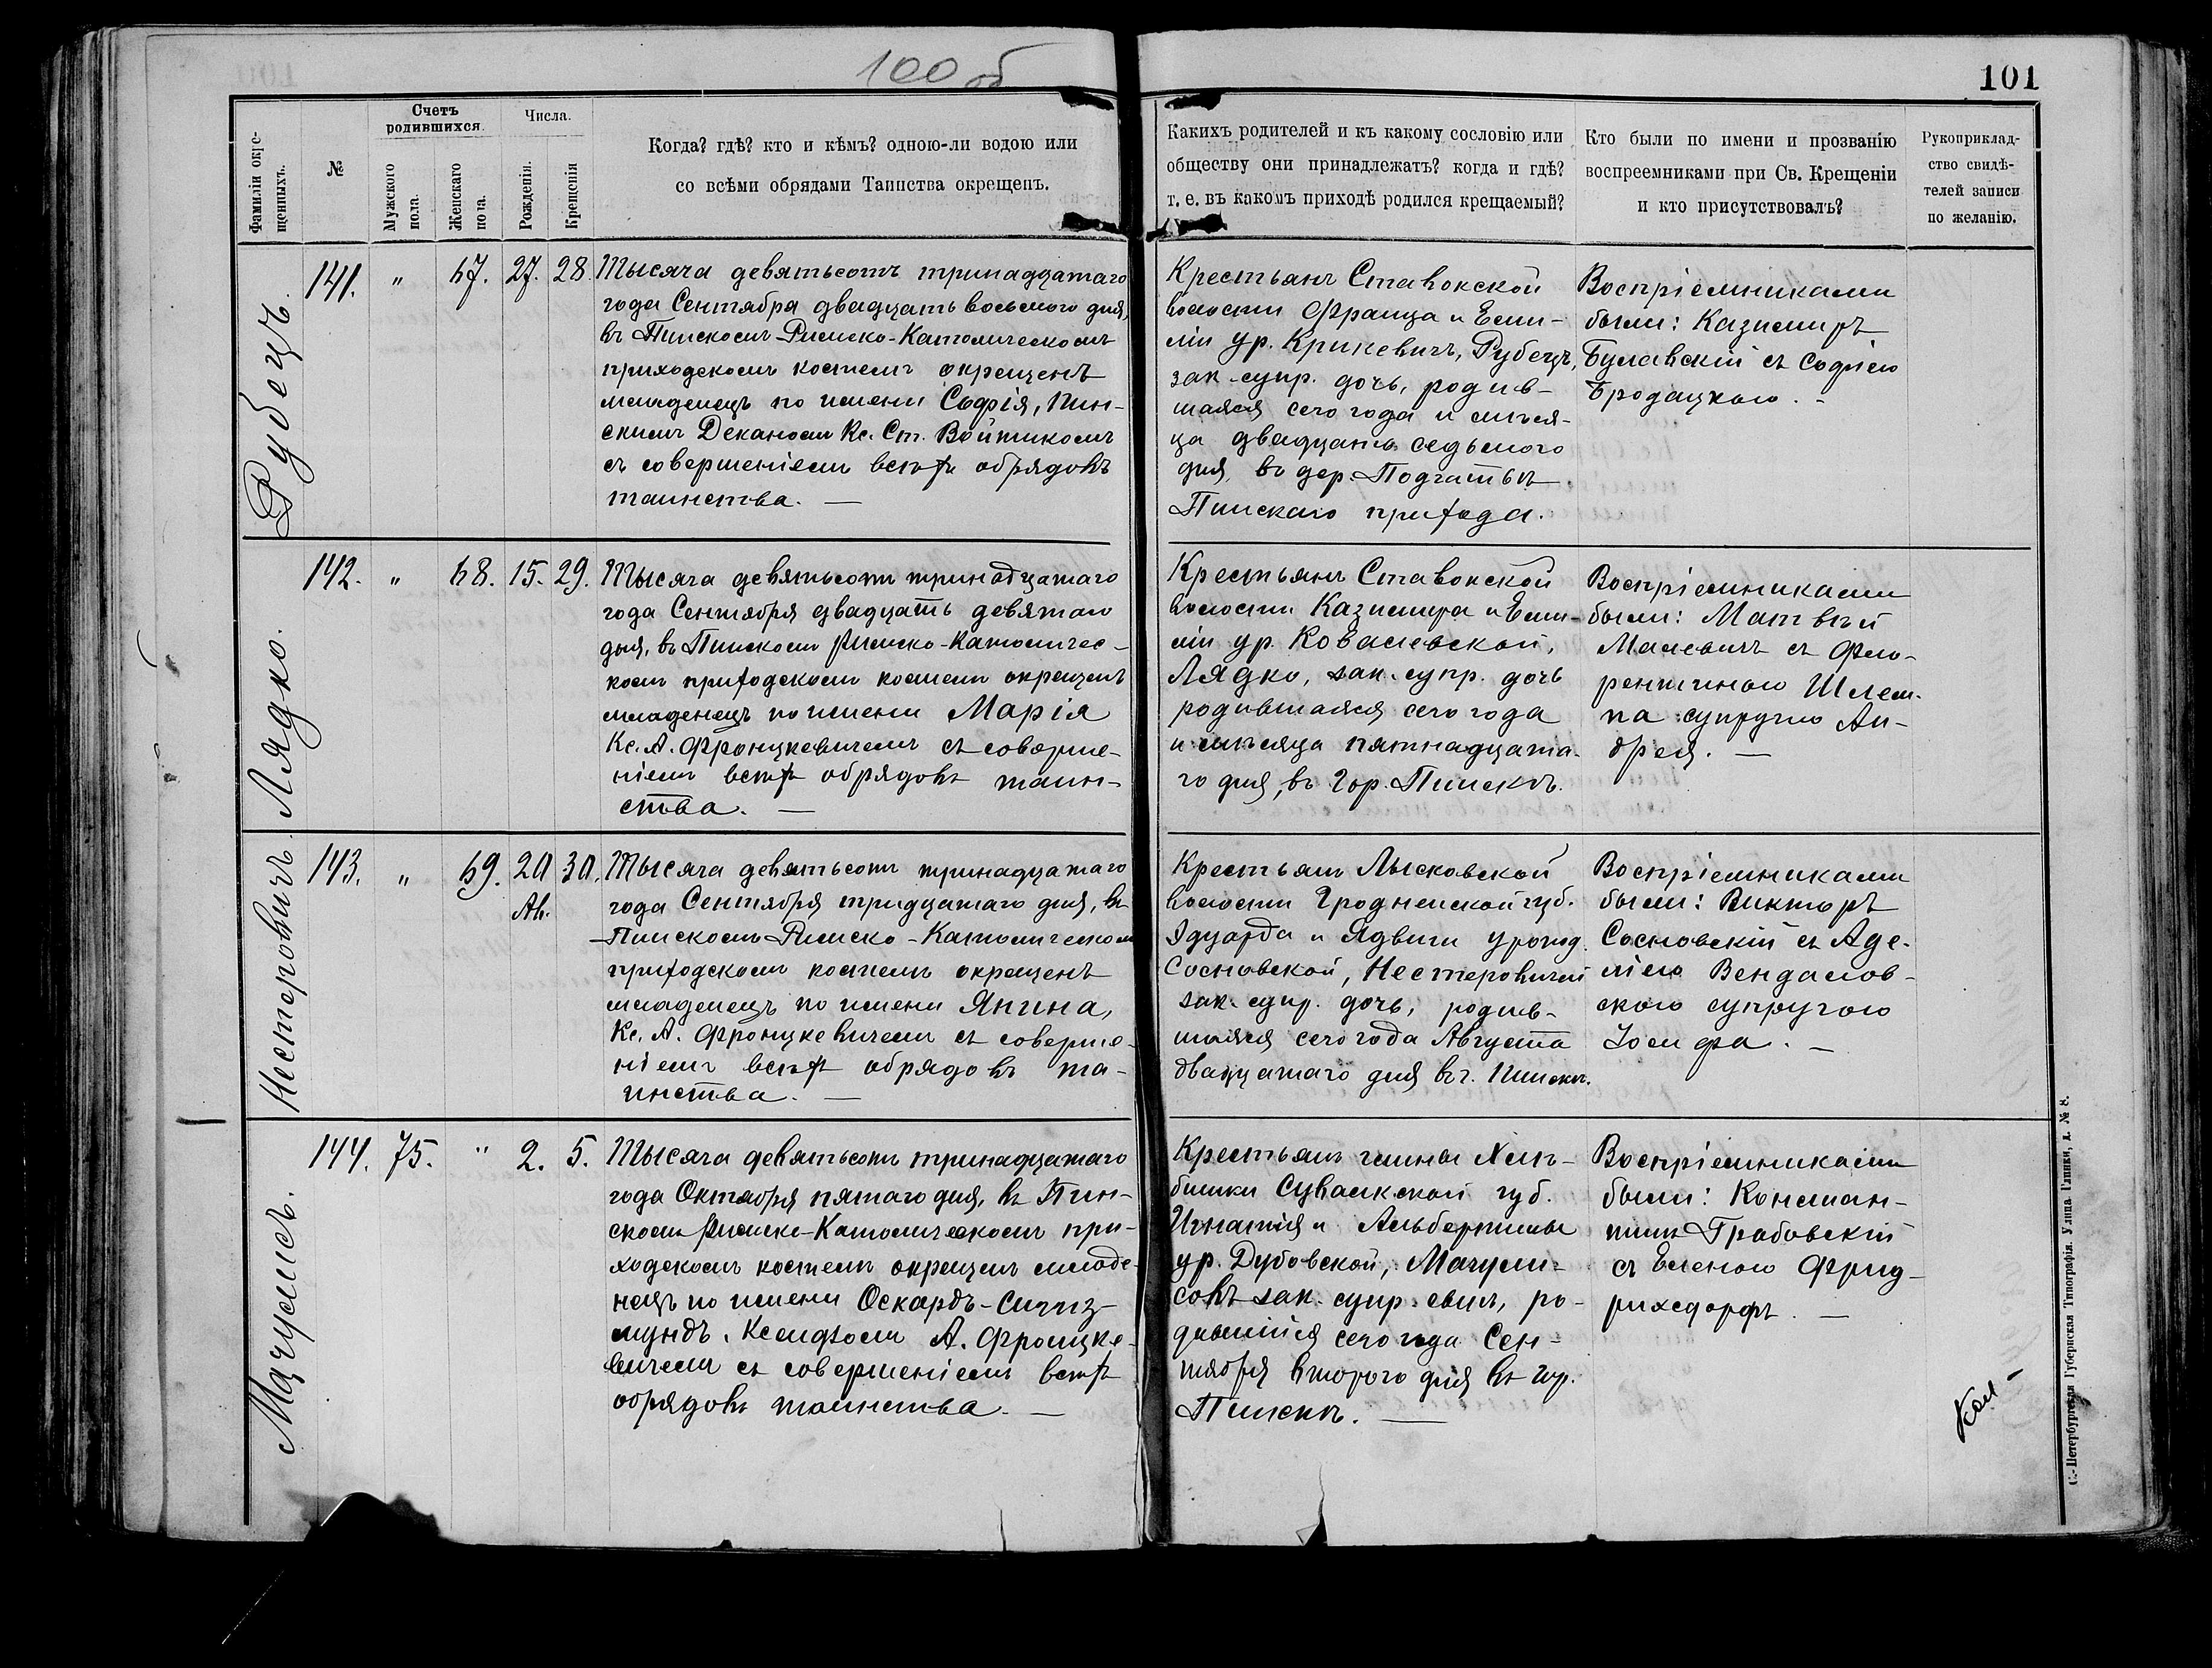 100 об
101
Фамиліи окре-
щенныхъ.
№
Счетъ
родившихся.
Мужского
пола.
Женскаго
пола.
Числа.
Рожденія.
Крещенія
Когда? гдѣ? кто и кѣмъ? одною-ли водою или
со всѣми обрядами Таинства окрещенъ.
Какихъ родителей и къ какому сословію или
обществу они принадлежатъ? когда и гдѣ?
т. е. въ какомъ приходѣ родился крещаемый?
Кто были по имени и прозванію
воспреемниками при Св. Крещеніи
и кто присутствовалъ?
Рукоприклад-
ство свидѣ-
телей записи
по желанію.
Рубецъ.
141. " 67. 27. 28.
Тысяча девятьсотъ тринадцатаго
года Сентября двадцать восьмого дня,
въ Пинскомъ Римско-Католическомъ
приходскомъ костелѣ окрещенъ
младенецъ по имени Софія, Пин-
скимъ Деканомъ Кс. Ст. Войтикомъ
съ совершеніемъ всѣхъ обрядовъ
таинства. —
Крестьянъ Ставокской
волости Франца и Еми-
ліи ур. Крикевичъ, Рубецъ,
зак. супр. дочь, родив-
шаяся сего года и мѣся-
ца двадцать седьмого
дня, въ дер. Подгатье
Пинскаго прихода.
Воспріемниками
были: Казимиръ
Булавскій съ Софіею
Бродацкою. -
Лядко.
142. " 68. 15. 29.
Тысяча девятьсотъ тринадцатаго
года Сентября двадцать девятаго
дня, въ Пинскомъ Римско-Католичес-
комъ приходскомъ костелѣ окрещенъ
младенецъ по имени Марія
Кс. А. Фронцкевичемъ съ соверше-
ніемъ всѣхъ обрядовъ таин-
ства. —
Крестьянъ Ставокской
волости Казимира и Еми-
ліи ур. Ковалевской,
Лядко, зак. супр. дочь
родившаяся сего года
и мѣсяца пятнадцата-
го дня, въ гор. Пинскѣ.
Воспріемниками
были: Матвѣй
Малевичъ съ Фло-
рентиною Шлем-
па супругою Ан-
дрея. —
Нестеровичъ.
143. " 69. 20 30.
Ав.
Тысяча девятьсотъ тринадцатаго
года Сентября тридцатаго дня, въ
Пинскомъ Римско-Католическомъ
приходскомъ костелѣ окрещенъ
младенецъ по имени Янина,
Кс. А. Фронцкевичемъ съ соверше-
ніемъ всѣхъ обрядовъ та-
инства. —
Крестьянъ Лысковской
волости Гродненской губ.
Эдуарда и Ядвиги урожд.
Сосновской, Нестеровичей
зак. супр. дочь, родив-
шаяся сего года Августа
двадцатаго дня въ г. Пинскѣ.
Воспріемниками
были: Викторъ
Сосновскій съ Аде-
ліею Вендалов-
скою супругою
Іосифа. —
Мачулисъ.
144. 75. " 2. 5.
Тысяча девятьсотъ тринадцатаго
года Октября пятаго дня, въ Пин-
скомъ Римско-Католическомъ при-
ходскомъ костелѣ окрещенъ младе-
нецъ по имени Оскардъ-Сигиз-
мундъ, Ксендзомъ А. Фронцке-
вичемъ съ совершеніемъ всѣхъ
обрядовъ таинства. —
Крестьянъ гмины Хлѣ-
бишки Сувалкской губ.
Игнатія и Альбертины
ур. Дубовской, Мачули-
совъ зак. супр. сынъ, ро-
дившійся сего года Сен-
тября второго дня въ гор.
Пинскѣ. —
Воспріемниками
были: Констан-
тинъ Грабовскій
съ Еленою Фрид-
рихсдорфъ. —
С.-Петербургская Губернская Типографія. Улица Глинки, д. № 8.